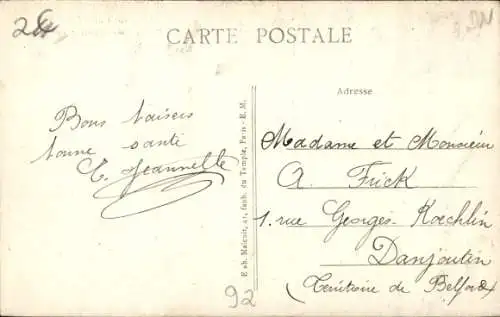 CARTE POSTALE
Adresse
Bons baisers
bonne santé
E. Jeannelle
Madame et Monsieur
A. Frick
1. rue Georges Kœchlin
Danjoutin
(Territoire de Belfort)
faub. du Temple, Paris - E. M.
92